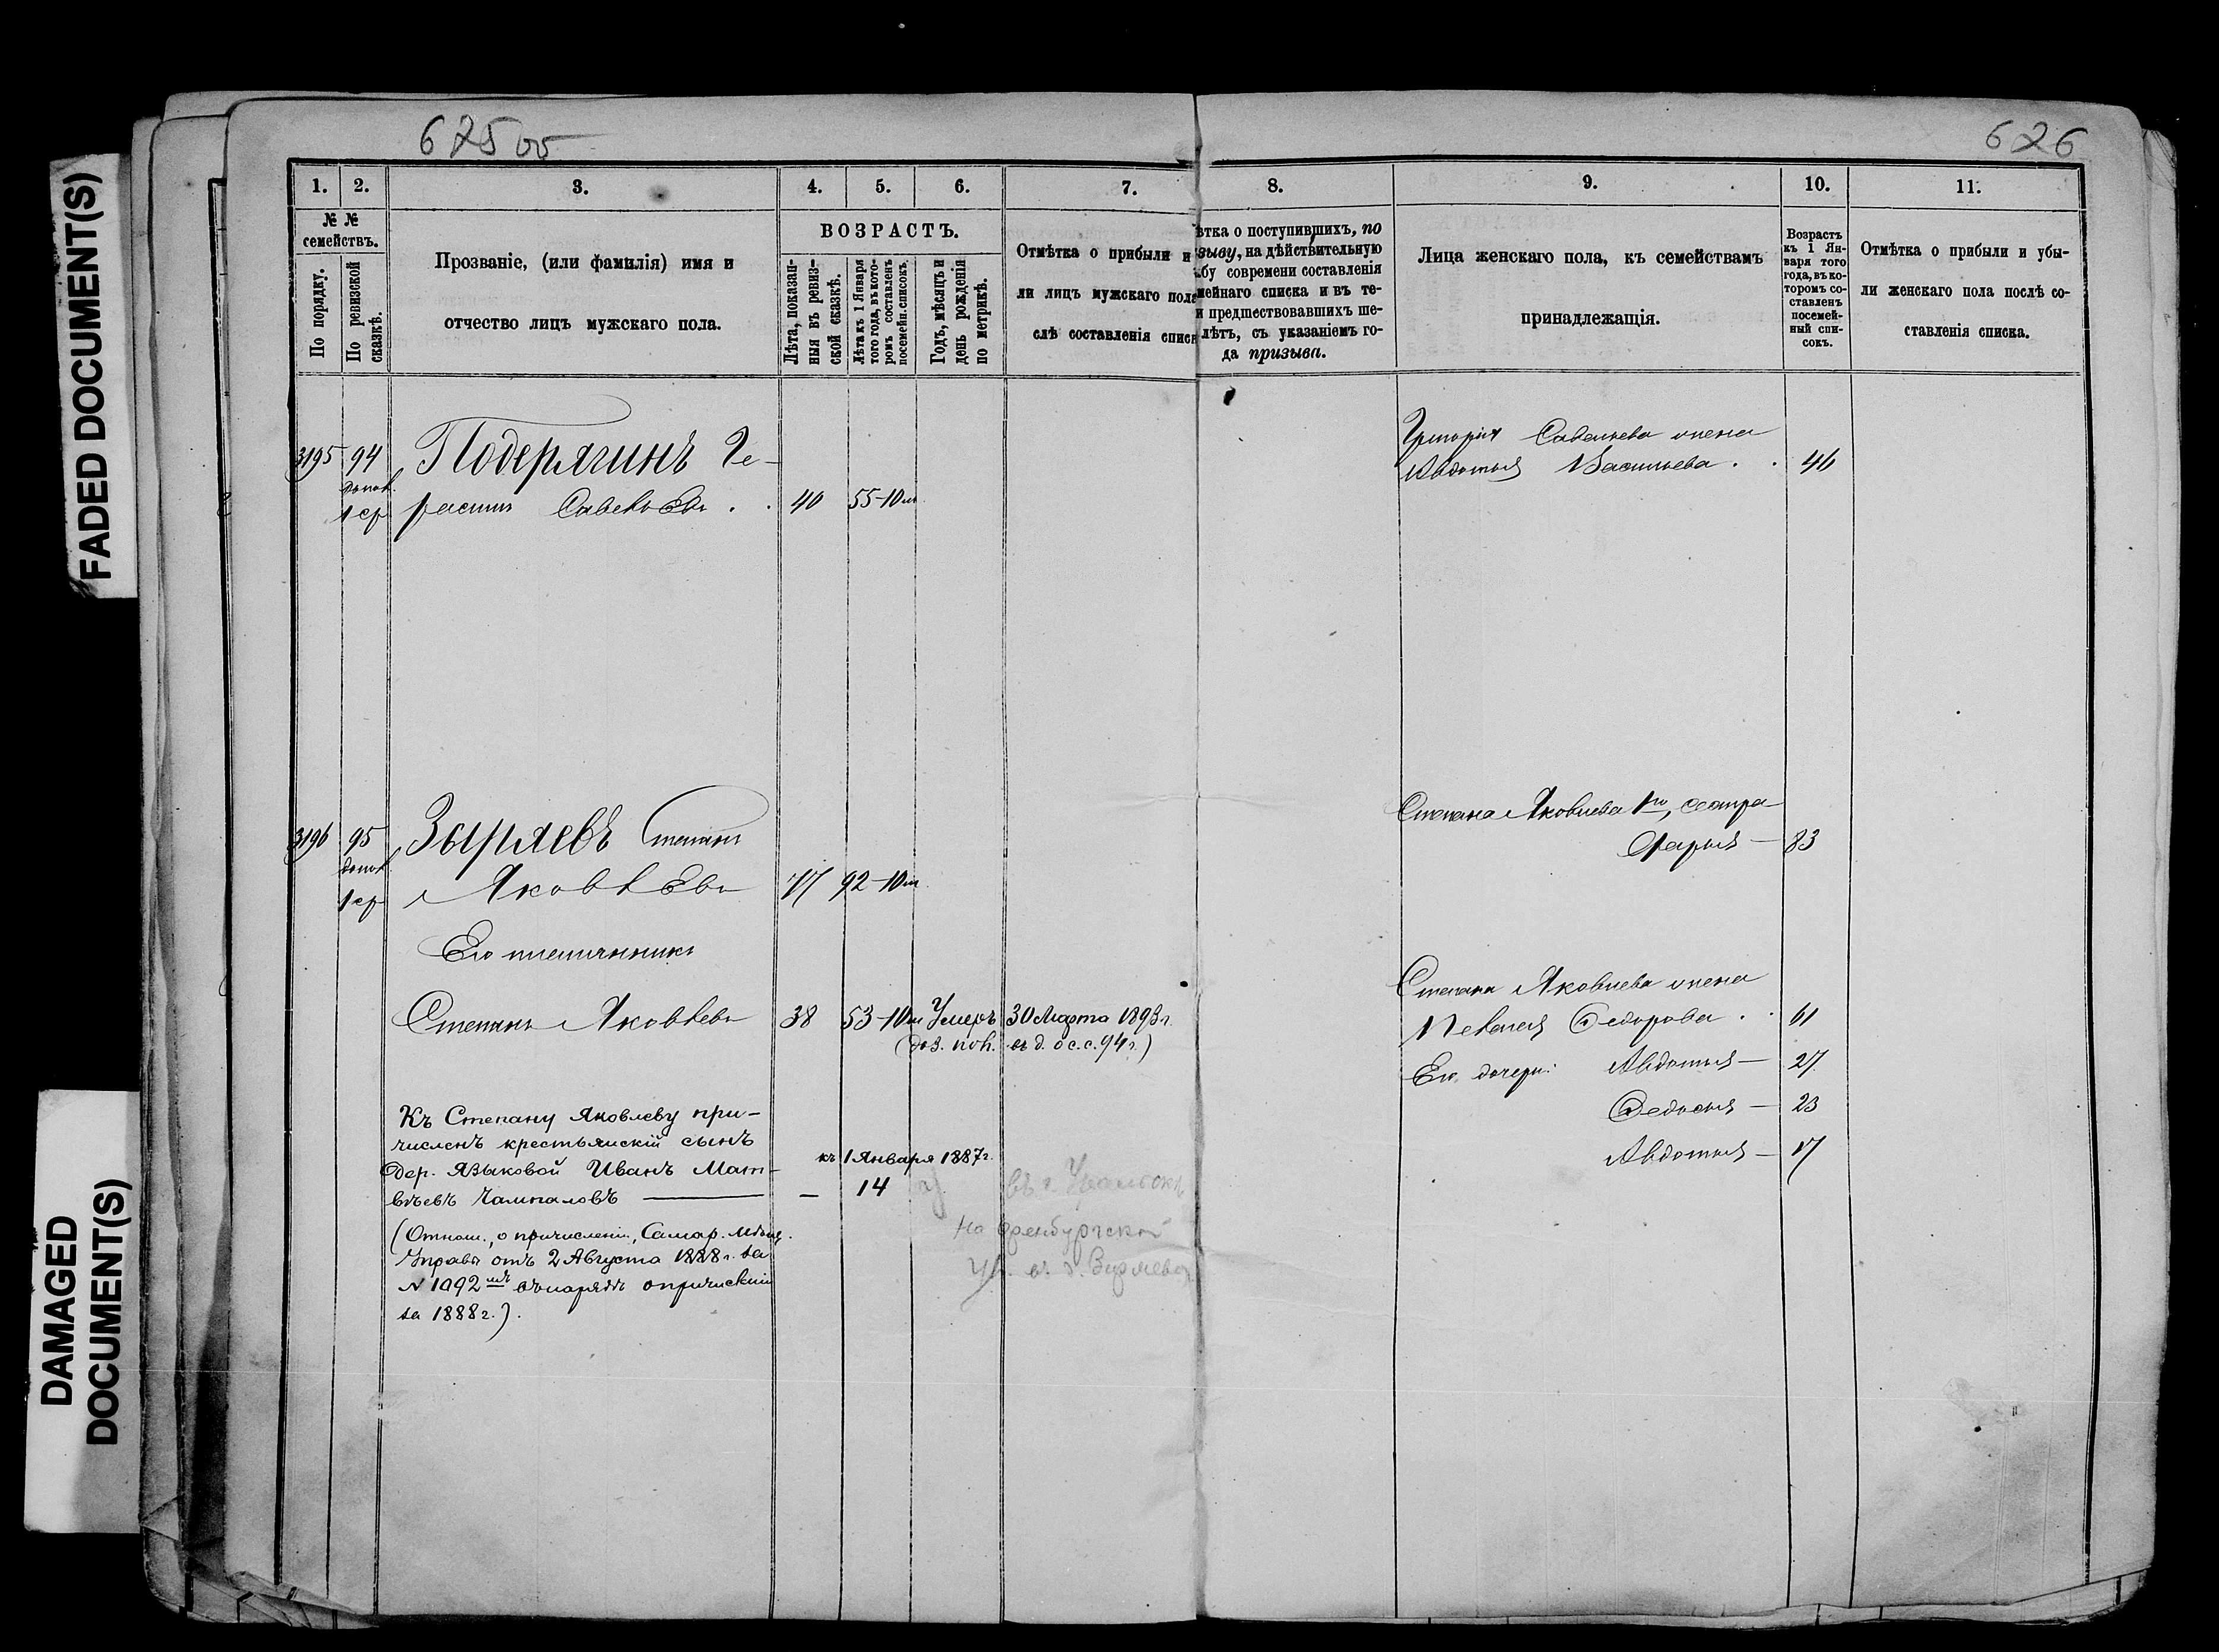 FADED DOCUMENT(S)
DAMAGED
DOCUMENT(S)
625 об
626
1.
2.
3.
4.
5.
6.
7.
8.
9.
10.
11.
№ №
семействъ.
По порядку.
По ревизской
сказкѣ.
Прозваніе, (или фамилія) имя и
отчество лицъ мужскаго пола.
ВОЗРАСТЪ.
Лѣта, показан-
ныя въ ревиз-
ской сказкѣ.
Лѣта къ 1 Января
того года, въ кото-
ромъ составленъ
посемейн. списокъ.
Годъ, мѣсяцъ и
день рожденія
по метрикѣ.
Отмѣтка о прибыли и
ли лицъ мужскаго пола
слѣ составленія списк
ѣтка о поступившихъ, по
зыву, на дѣйствительную
бу современи составленія
мейнаго списка и въ те-
и предшествовавшихъ ше-
лѣтъ, съ указаніемъ го-
да призыва.
Лица женскаго пола, къ семействамъ
принадлежащія.
Возрастъ
къ 1 Ян-
варя того
года, въ ко-
торомъ со-
ставленъ
посемей-
ный спи-
сокъ.
Отмѣтка о прибыли и убы-
ли женскаго пола послѣ со-
ставленія списка.
3195 94 Подерягинъ Ге-
1 ср расим Савельевъ . . 40 55-10м
Григорія Савельева жена
Авдотья Васильева . . 46
3196 95 Зыряевъ Степанъ
1 ср Яковлевъ 77 92-10м
Степана Яковлева 1го, сестра
Дарья — 83
Его племянникъ
Степанъ Яковлевъ 38 53-10м Умеръ 30 Марта 1893 г.
Степана Яковлева жена
Пелагея Федорова . . 61
Его дочери: Авдотья — 27
Федосья — 23
Авдотья — 17
Къ Степану Яковлеву при-
численъ крестьянскій сынъ
дер. Языковой Иванъ Мат-
вѣевъ Чампаловъ —
къ 1 Января 1887 г.
— 14
(Отнош., о причисленіи, Самар. Мѣщ.
Управы отъ 2 Августа 1888 г. за
№ 1092 въ нарядѣ о причисленіи
за 1888 г.).
въ г. Уральскѣ
На Оренбургской
ул. в. д. Зыряева